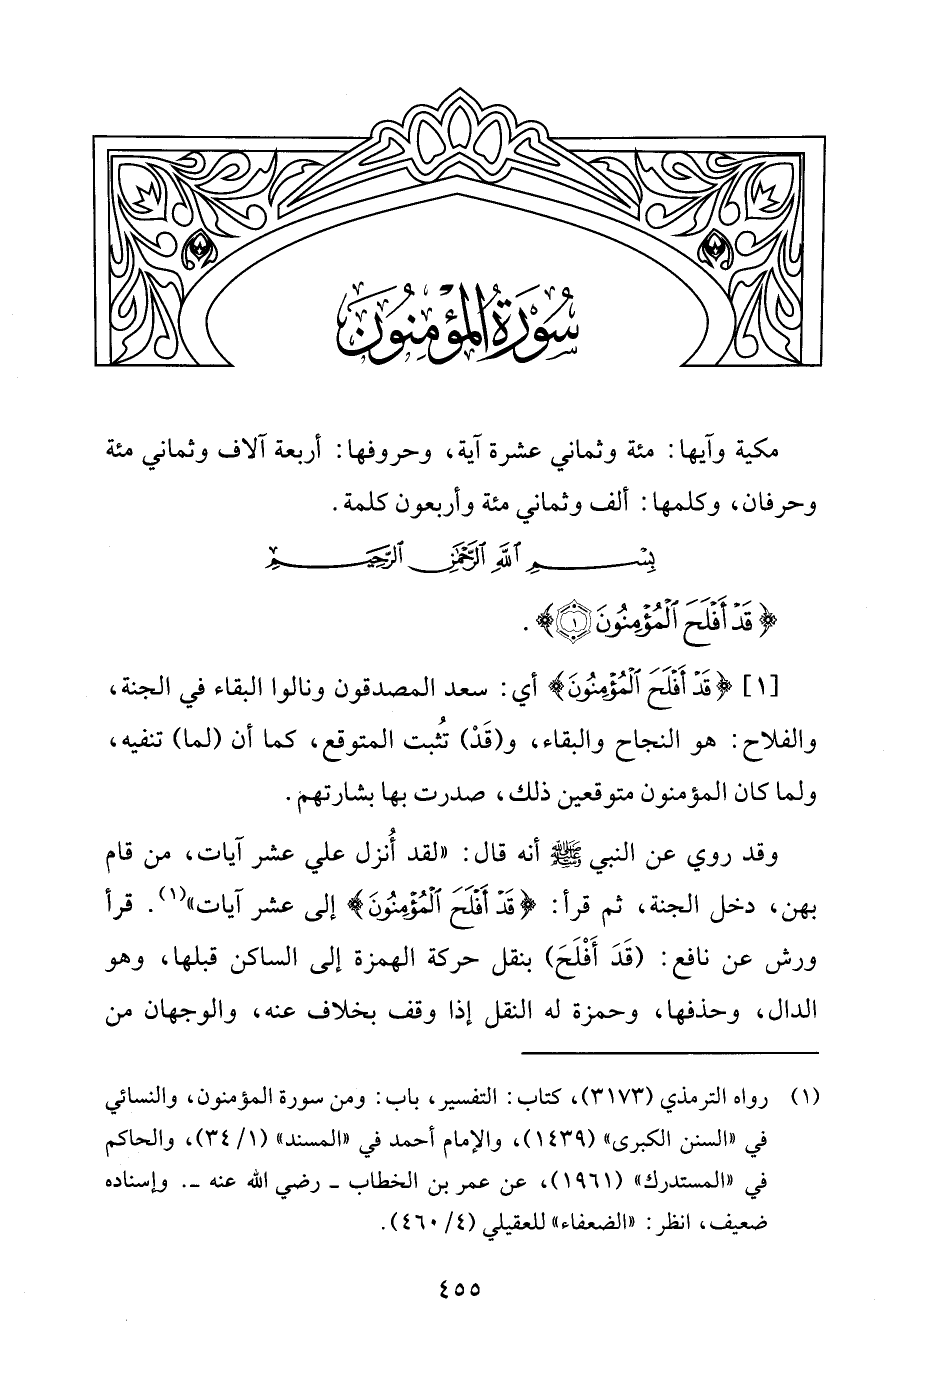 سُورَةُ المُؤْمِنُونَ
مكية وآيها: مئة وثماني عشرة آية، وحروفها: أربعة آلاف وثماني مئة
وحرفان، وكلمها: ألف وثماني مئة وأربعون كلمة.
بِسْمِ اللَّهِ الرَّحْمَٰنِ الرَّحِيمِ
﴿قَدْ أَفْلَحَ ٱلْمُؤْمِنُونَ ١﴾.
[١] ﴿قَدْ أَفْلَحَ ٱلْمُؤْمِنُونَ﴾ أي: سعد المصدقون ونالوا البقاء في الجنة،
والفلاح: هو النجاح والبقاء، و(قَدْ) تُثبت المتوقع، كما أن (لما) تنفيه،
ولما كان المؤمنون متوقعين ذلك، صدرت بها بشارتهم.
وقد روي عن النبي ﷺ أنه قال: «لقد أُنزل علي عشر آيات، من قام
بهن، دخل الجنة، ثم قرأ: ﴿قَدْ أَفْلَحَ ٱلْمُؤْمِنُونَ﴾ إلى عشر آيات»(١). قرأ
ورش عن نافع: (قَدَ أَفْلَحَ) بنقل حركة الهمزة إلى الساكن قبلها، وهو
الدال، وحذفها، وحمزة له النقل إذا وقف بخلاف عنه، والوجهان من
(١) رواه الترمذي (٣١٧٣)، كتاب: التفسير، باب: ومن سورة المؤمنون، والنسائي
في «السنن الكبرى» (١٤٣٩)، والإمام أحمد في «المسند» (١/ ٣٤)، والحاكم
في «المستدرك» (١٩٦١)، عن عمر بن الخطاب ـ رضي الله عنه ـ. وإسناده
ضعيف، انظر: «الضعفاء» للعقيلي (٤/ ٤٦٠).
٤٥٥